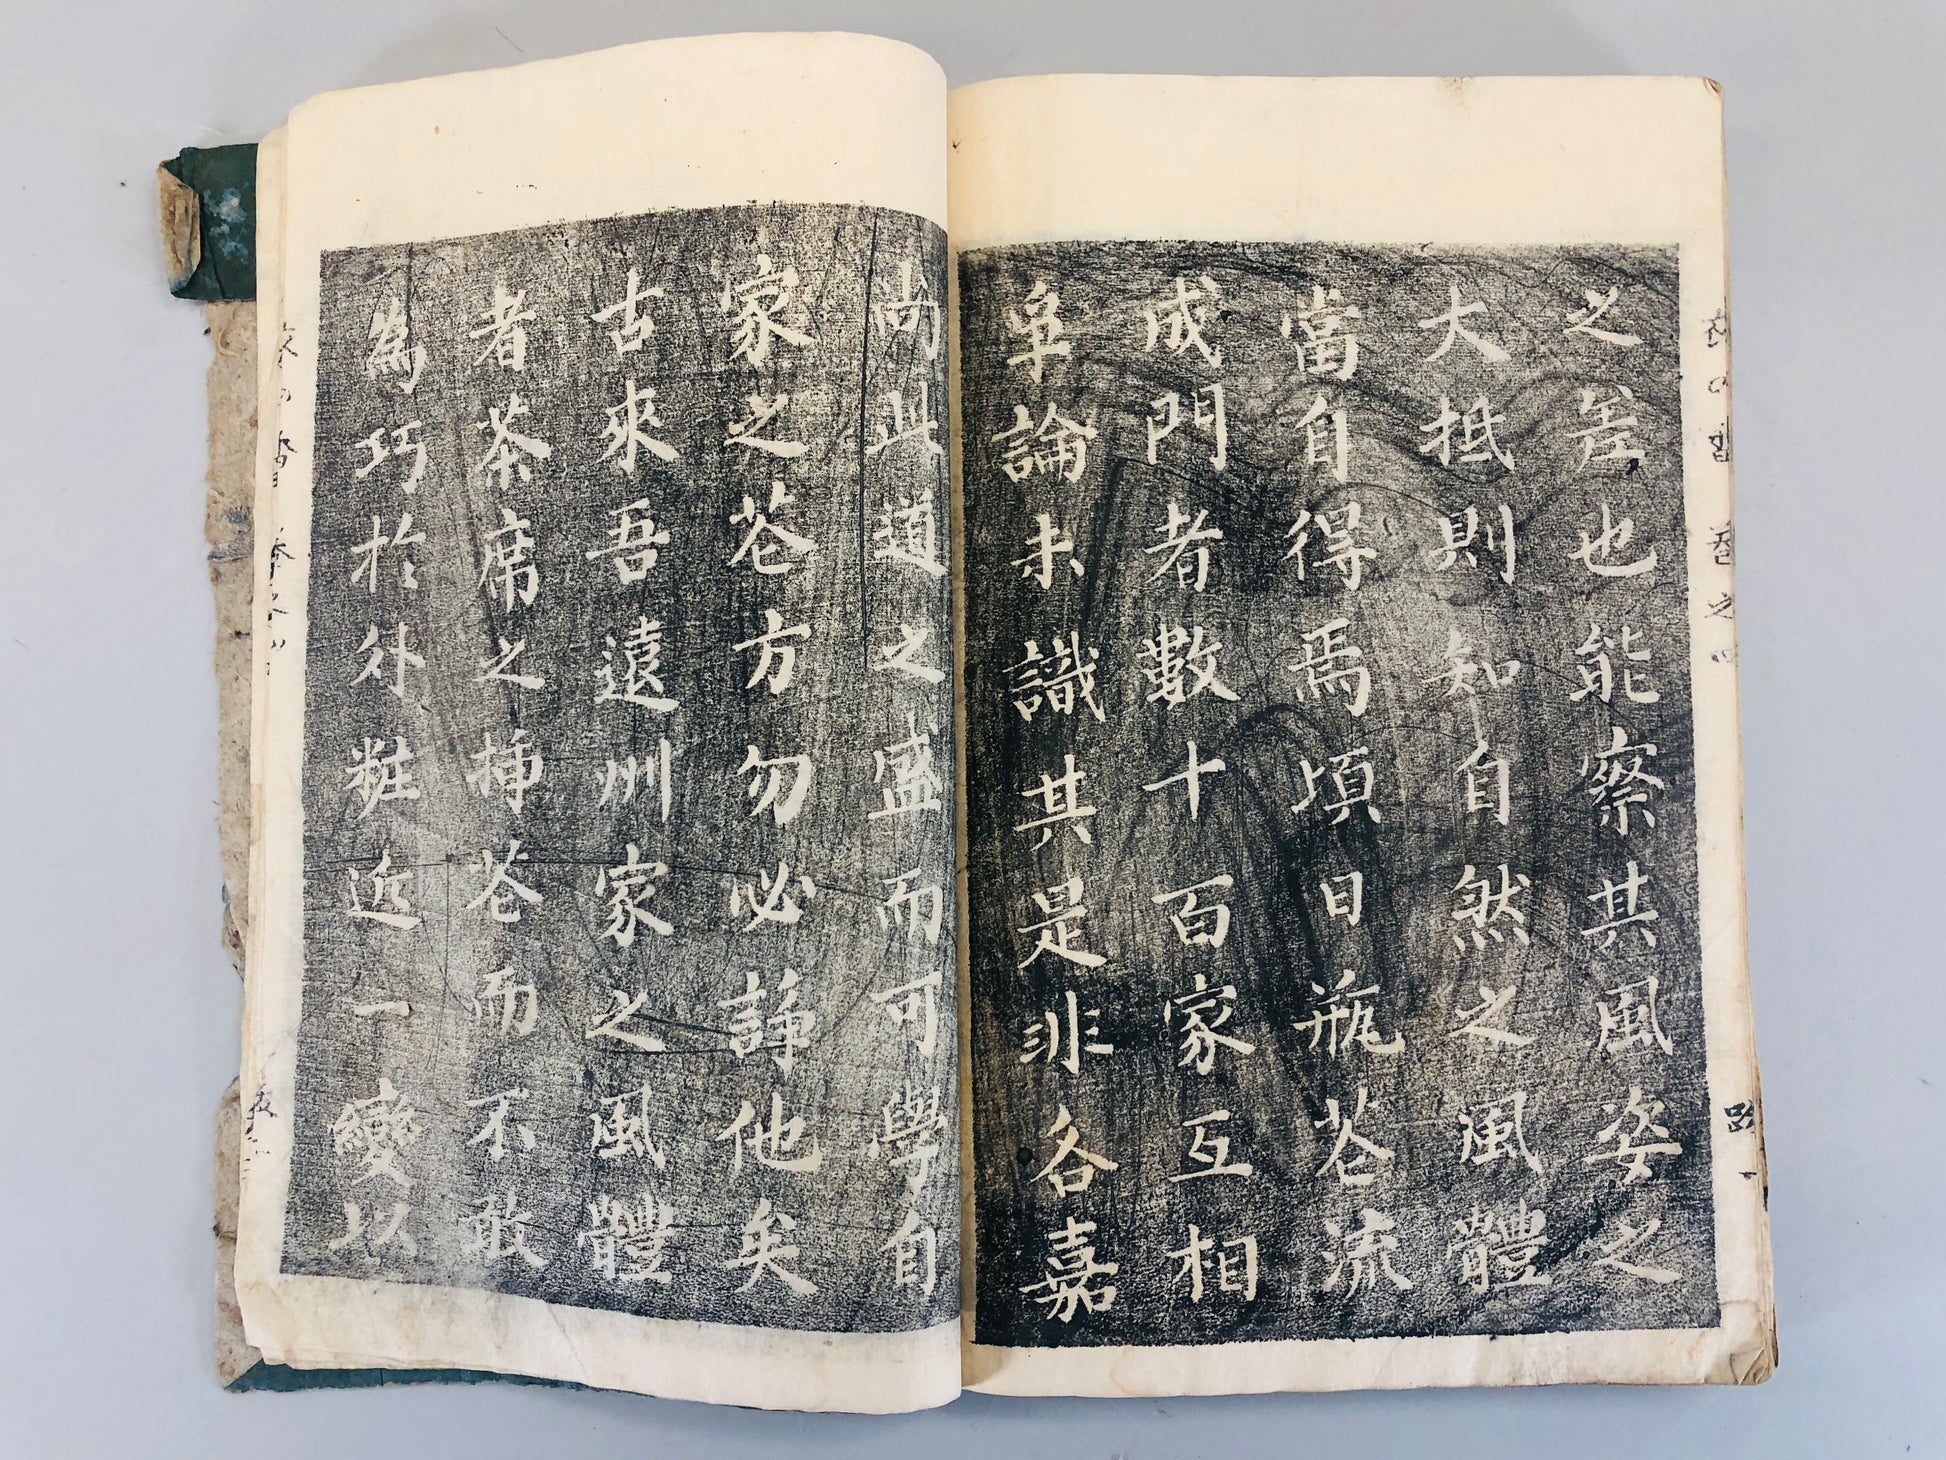 之差也能察其風姿之
大抵則知自然之風體
當自得焉頃日瓶花流
成門者數十百家互相
阜論未識其是非各嘉
尚此道之盛而可學自
家之花方勿必諍他矣
古來吾遠州家之風體
者茶席之挿花而不敢
為巧於外粧近一變以